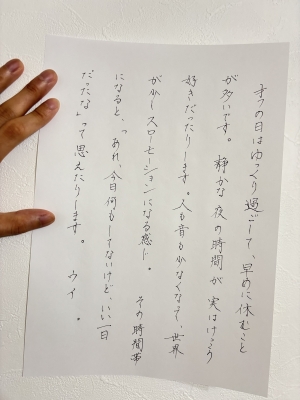 オフの日はゆっくり過ごして、早めに休むこと
が多いです。静かな夜の時間が実はけっこう
好きだったりします。人も音も少なくなって、世界
が少しスローモーションになる感じ。その時間帯
になると、「あれ、今日何もしてないけど、いい一日
だったな」って思えたりします。ウイ。